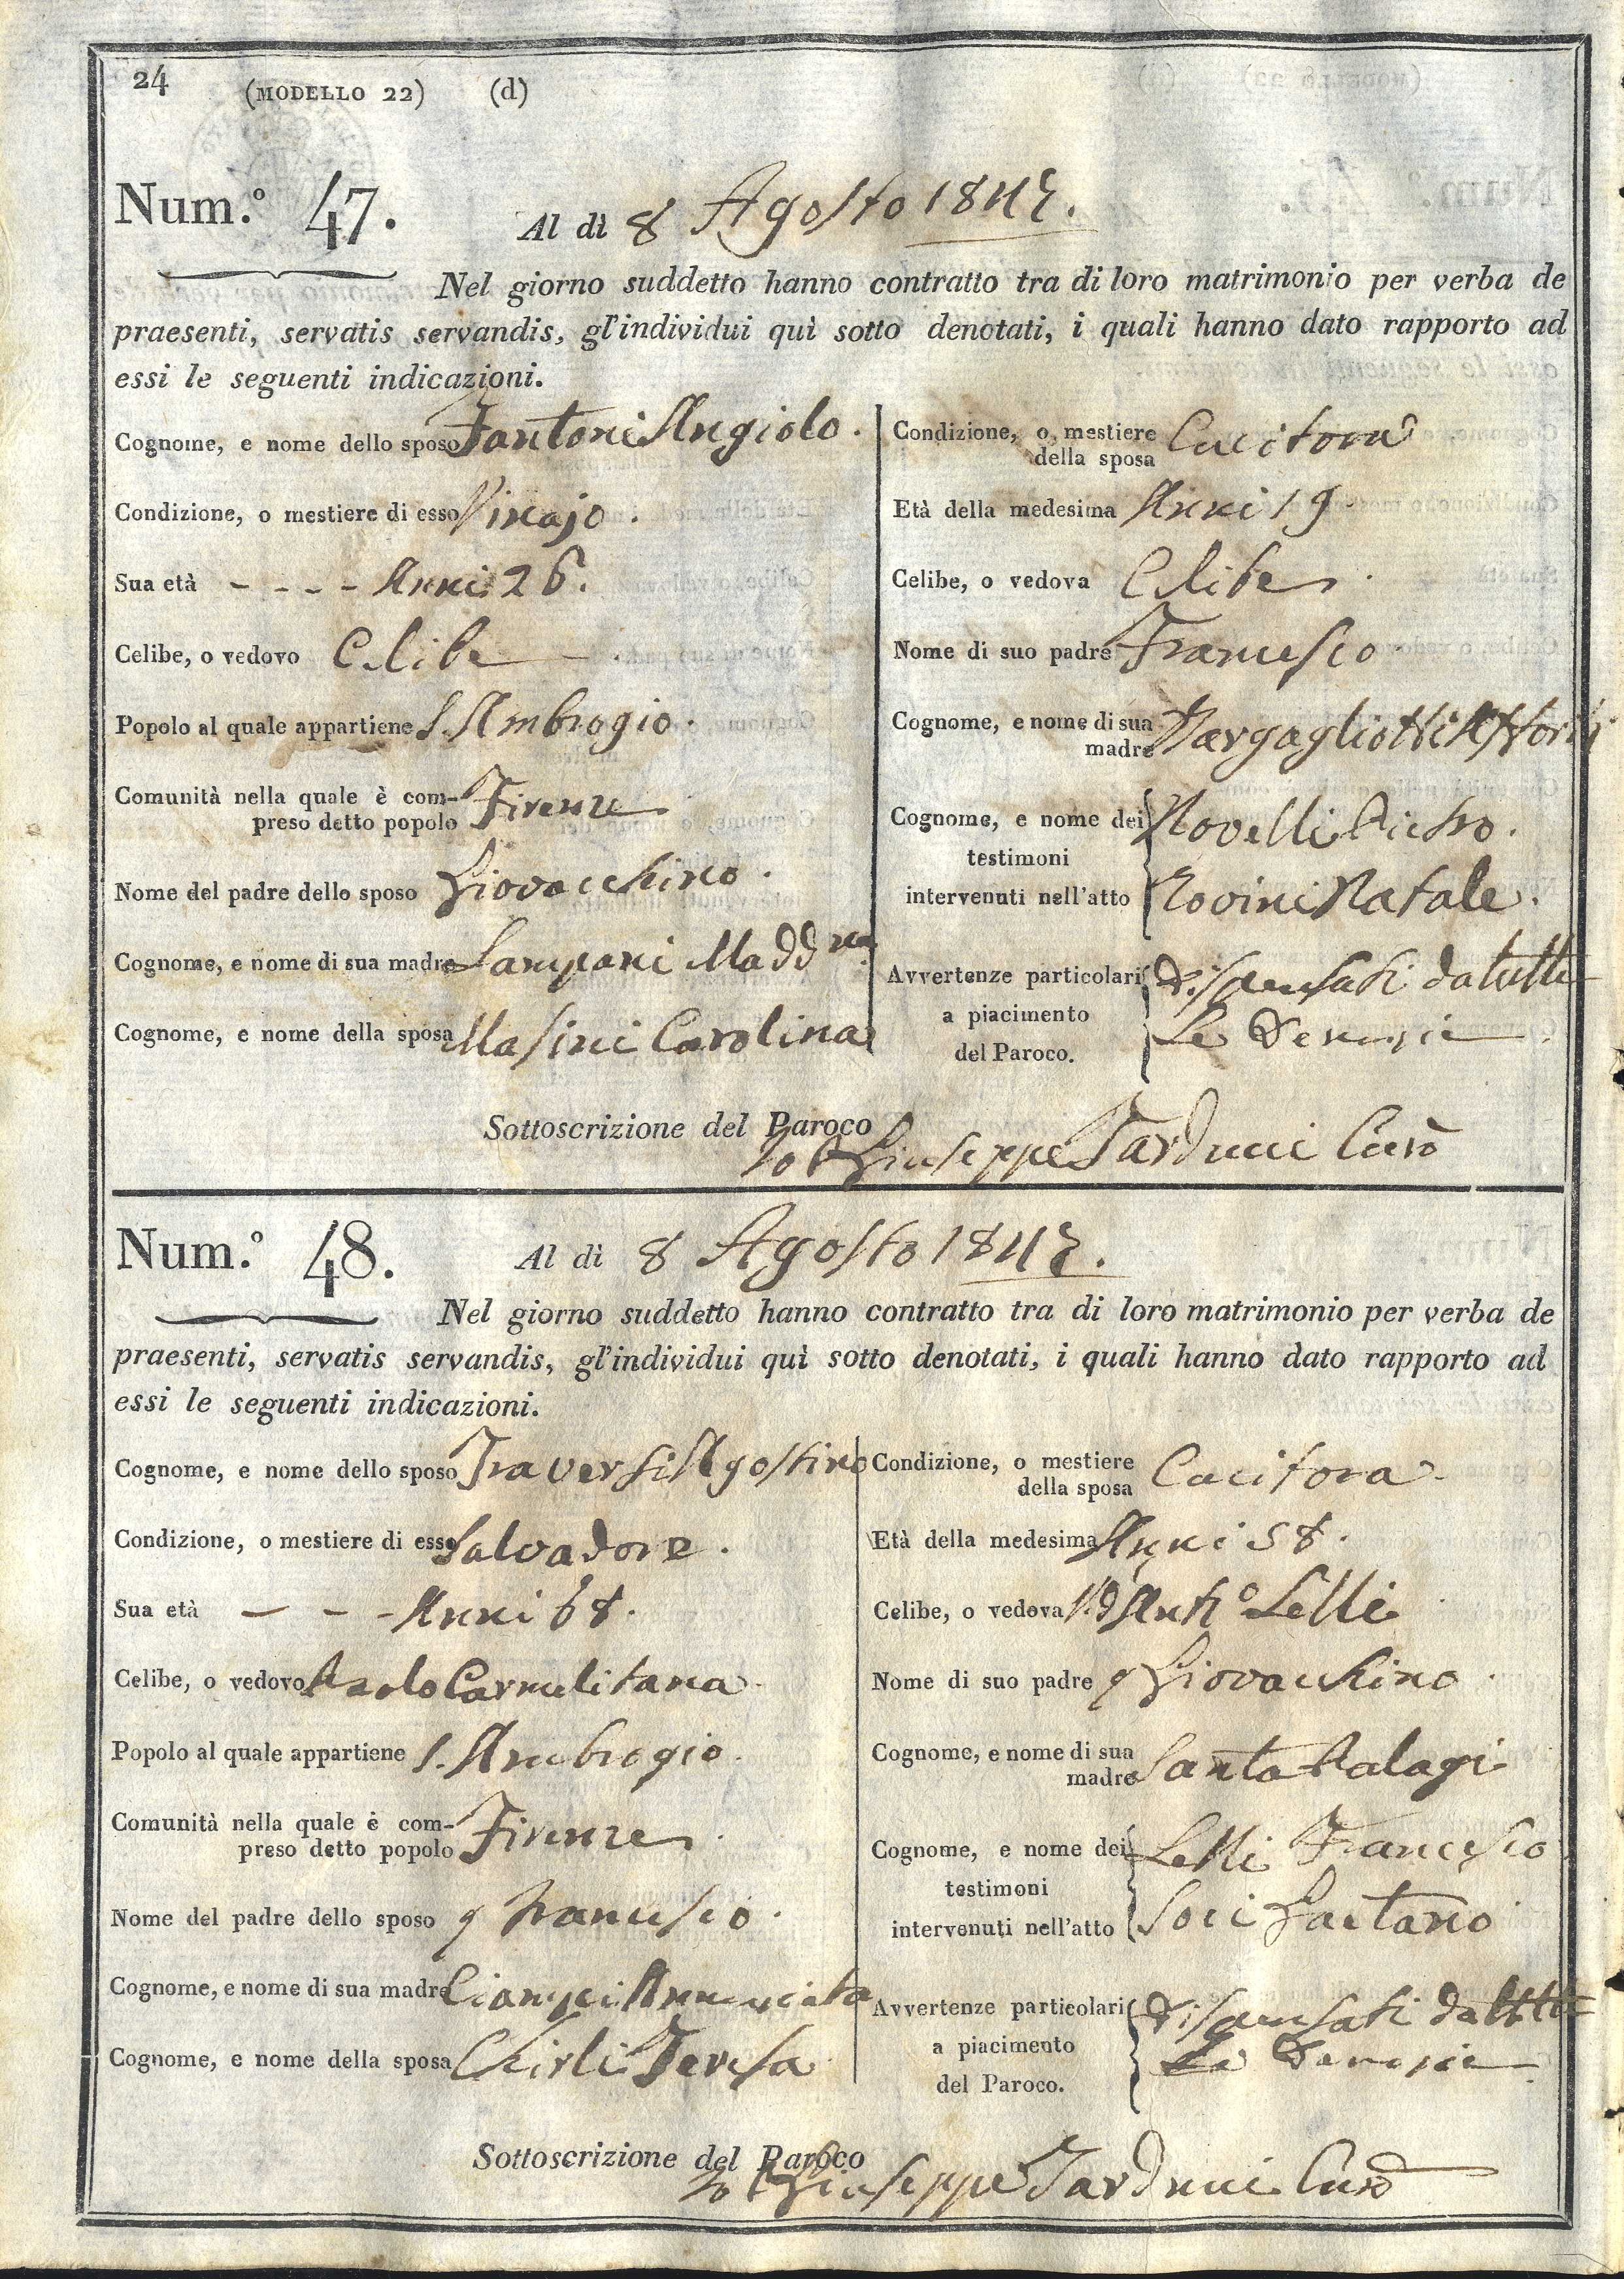 24 (MODELLO 22) (d)
Num.º 47. Al dì 8 Agosto 184
Nel giorno suddetto hanno contratto tra di loro matrimonio per verba de
praesenti, servatis servandis, gl'individui quì sotto denotati, i quali hanno dato rapporto ad
essi le seguenti indicazioni.
Cognome, e nome dello sposo Fantoni Angiolo.
Condizione, o mestiere di esso Vinajo.
Sua età - - - - Anni 26.
Celibe, o vedovo Celibe
Popolo al quale appartiene S. Ambrogio.
Comunità nella quale è com-
preso detto popolo Firenze
Nome del padre dello sposo Giovacchino.
Cognome, e nome di sua madre Lampani Madd.na
Cognome, e nome della sposa Masini Carolina
Condizione, o mestiere
della sposa Cucitora
Età della medesima Anni 19.
Celibe, o vedova Celibe
Nome di suo padre Francesco
Cognome, e nome di sua
madre Bargagliotti
Cognome, e nome dei Novelli Pietro.
testimoni
intervenuti nell'atto Rovini Natale.
Avvertenze particolari Dispensati da tutte
a piacimento Le Denunzie
del Paroco.
Sottoscrizione del Paroco
Io P Giuseppe Tarducci Curò
Num.º 48. Al dì 8 Agosto 184
Nel giorno suddetto hanno contratto tra di loro matrimonio per verba de
praesenti, servatis servandis, gl'individui quì sotto denotati, i quali hanno dato rapporto ad
essi le seguenti indicazioni.
Cognome, e nome dello sposo Traversi Agostino
Condizione, o mestiere di esso Salvadore.
Sua età - - - Anni 68.
Celibe, o vedovo Carmelitana
Popolo al quale appartiene S. Ambrogio.
Comunità nella quale è com-
preso detto popolo Firenze
Nome del padre dello sposo q Francesco.
Cognome, e nome di sua madre Ciampi Annunciata
Cognome, e nome della sposa Chirli Teresa
Condizione, o mestiere
della sposa Cucitora
Età della medesima Anni 58.
Celibe, o vedova Vd Ant.o Lelli
Nome di suo padre q Giovacchino
Cognome, e nome di sua
madre Santa Palagi
Cognome, e nome dei Lelli Francesco
testimoni
intervenuti nell'atto Soci Gaetano
Avvertenze particolari Dispensati da tutte
a piacimento Le Denunzie
del Paroco.
Sottoscrizione del Paroco
Io P Giuseppe Tarducci Curò